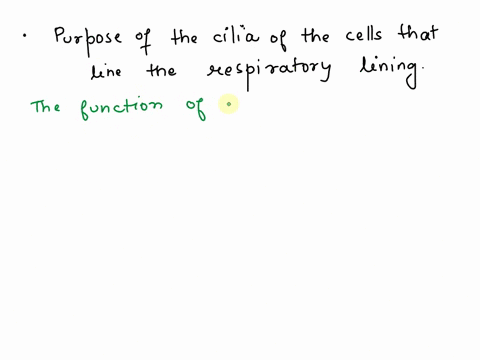 · Purpose of the cilia of the cells that
line the respiratory lining.
The function of